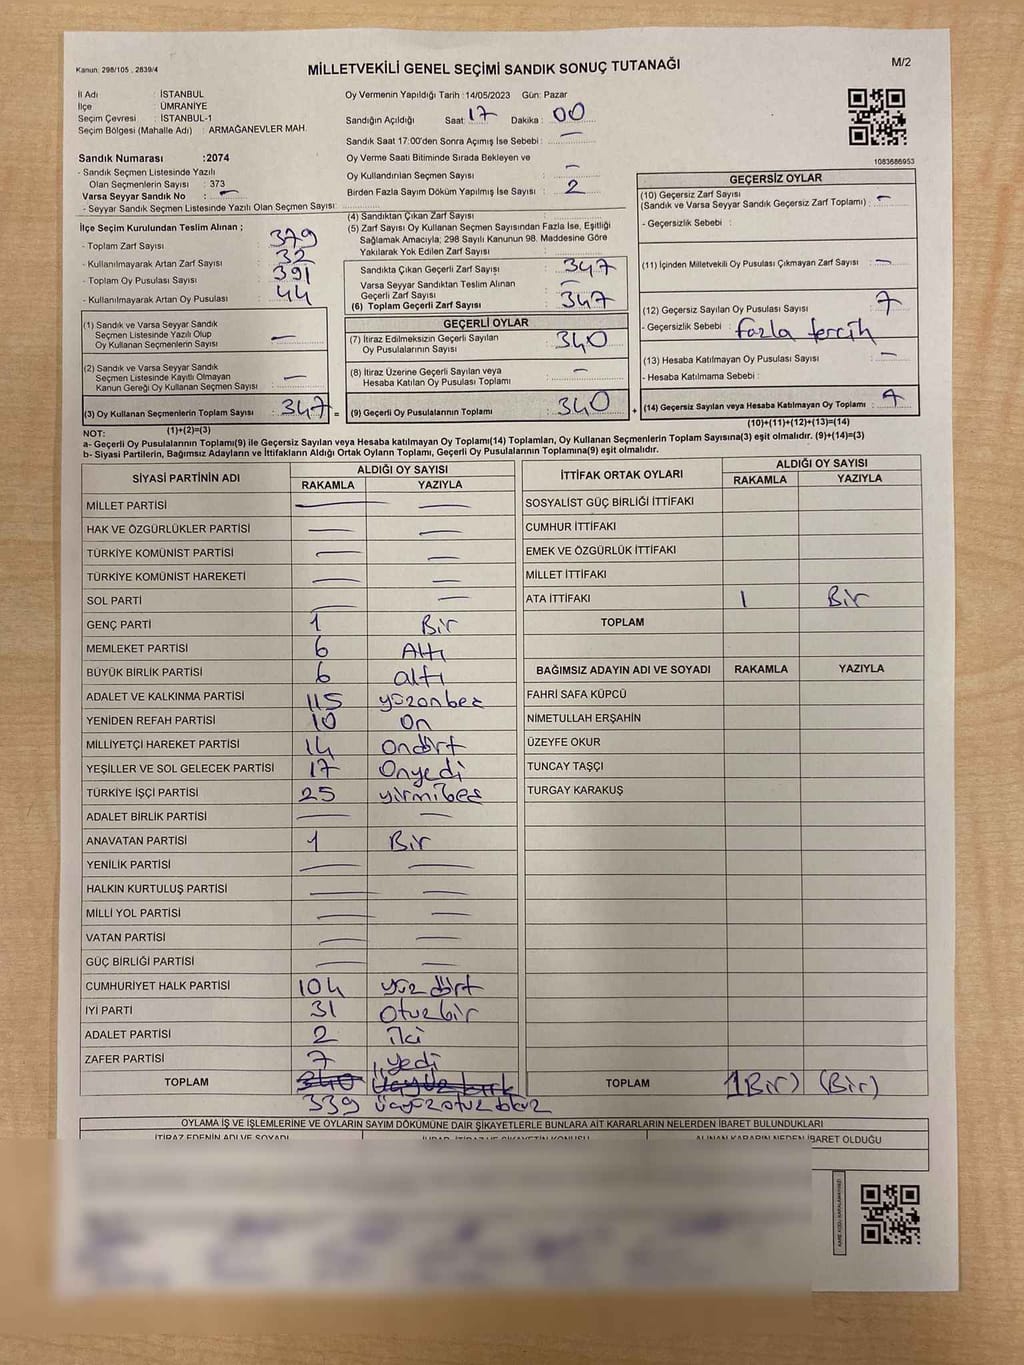 Kanun: 298/105 , 2839/4
MİLLETVEKİLİ GENEL SEÇİMİ SANDIK SONUÇ TUTANAĞI
M/2
İl Adı : İSTANBUL
İlçe : ÜMRANİYE
Seçim Çevresi : İSTANBUL-1
Seçim Bölgesi (Mahalle Adı) : ARMAĞANEVLER MAH.
Sandık Numarası :2074
- Sandık Seçmen Listesinde Yazılı
Olan Seçmenlerin Sayısı : 373
Varsa Seyyar Sandık No : —
- Seyyar Sandık Seçmen Listesinde Yazılı Olan Seçmen Sayısı:
Oy Vermenin Yapıldığı Tarih :14/05/2023 Gün: Pazar
Sandığın Açıldığı Saat: 17 Dakika : 00
Sandık Saat 17:00'den Sonra Açımış İse Sebebi : —
Oy Verme Saati Bitiminde Sırada Bekleyen ve
Oy Kullandırılan Seçmen Sayısı : —
Birden Fazla Sayım Döküm Yapılmış İse Sayısı : 2
1083686953
İlçe Seçim Kurulundan Teslim Alınan ;
- Toplam Zarf Sayısı : 379
- Kullanılmayarak Artan Zarf Sayısı : 32
- Toplam Oy Pusulası Sayısı : 391
- Kullanılmayarak Artan Oy Pusulası : 44
(1) Sandık ve Varsa Seyyar Sandık
Seçmen Listesinde Yazılı Olup
Oy Kullanan Seçmenlerin Sayısı : —
(2) Sandık ve Varsa Seyyar Sandık
Seçmen Listesinde Kayıtlı Olmayan
Kanun Gereği Oy Kullanan Seçmen Sayısı : —
(3) Oy Kullanan Seçmenlerin Toplam Sayısı : 347 =
(1)+(2)=(3)
(4) Sandıktan Çıkan Zarf Sayısı :
(5) Zarf Sayısı Oy Kullanan Seçmen Sayısından Fazla İse, Eşitliği
Sağlamak Amacıyla; 298 Sayılı Kanunun 98. Maddesine Göre
Yakılarak Yok Edilen Zarf Sayısı :
Sandıkta Çıkan Geçerli Zarf Sayısı : 347
Varsa Seyyar Sandıktan Teslim Alınan
Geçerli Zarf Sayısı : —
(6) Toplam Geçerli Zarf Sayısı : 347
GEÇERLİ OYLAR
(7) İtiraz Edilmeksizin Geçerli Sayılan
Oy Pusulalarının Sayısı : 340
(8) İtiraz Üzerine Geçerli Sayılan veya
Hesaba Katılan Oy Pusulası Toplamı : —
(9) Geçerli Oy Pusulalarının Toplamı : 340 +
GEÇERSİZ OYLAR
(10) Geçersiz Zarf Sayısı
(Sandık ve Varsa Seyyar Sandık Geçersiz Zarf Toplamı) : —
- Geçersizlik Sebebi :
(11) İçinden Milletvekili Oy Pusulası Çıkmayan Zarf Sayısı : —
(12) Geçersiz Sayılan Oy Pusulası Sayısı : 7
- Geçersizlik Sebebi : fazla tercih
(13) Hesaba Katılmayan Oy Pusulası Sayısı : —
- Hesaba Katılmama Sebebi :
(14) Geçersiz Sayılan veya Hesaba Katılmayan Oy Toplamı : 7
(10)+(11)+(12)+(13)=(14)
NOT:
a- Geçerli Oy Pusulalarının Toplamı(9) ile Geçersiz Sayılan veya Hesaba katılmayan Oy Toplamı(14) Toplamları, Oy Kullanan Seçmenlerin Toplam Sayısına(3) eşit olmalıdır. (9)+(14)=(3)
b- Siyasi Partilerin, Bağımsız Adayların ve İttifakların Aldığı Ortak Oyların Toplamı, Geçerli Oy Pusulalarının Toplamına(9) eşit olmalıdır.
SİYASİ PARTİNİN ADI
ALDIĞI OY SAYISI
RAKAMLA YAZIYLA
MİLLET PARTİSİ — —
HAK VE ÖZGÜRLÜKLER PARTİSİ — —
TÜRKİYE KOMÜNİST PARTİSİ — —
TÜRKİYE KOMÜNİST HAREKETİ — —
SOL PARTİ — —
GENÇ PARTİ 1 Bir
MEMLEKET PARTİSİ 6 Altı
BÜYÜK BİRLİK PARTİSİ 6 altı
ADALET VE KALKINMA PARTİSİ 115 yüzonbeş
YENİDEN REFAH PARTİSİ 10 On
MİLLİYETÇİ HAREKET PARTİSİ 14 Ondört
YEŞİLLER VE SOL GELECEK PARTİSİ 17 Onyedi
TÜRKİYE İŞÇİ PARTİSİ 25 yirmibeş
ADALET BİRLİK PARTİSİ — —
ANAVATAN PARTİSİ 1 Bir
YENİLİK PARTİSİ — —
HALKIN KURTULUŞ PARTİSİ — —
MİLLİ YOL PARTİSİ — —
VATAN PARTİSİ — —
GÜÇ BİRLİĞİ PARTİSİ — —
CUMHURİYET HALK PARTİSİ 104 yüz dört
İYİ PARTİ 31 Otuzbir
ADALET PARTİSİ 2 İki
ZAFER PARTİSİ 7 yedi
TOPLAM 340 üçyüz kırk
339 üçyüzotuz dokuz
İTTİFAK ORTAK OYLARI
ALDIĞI OY SAYISI
RAKAMLA YAZIYLA
SOSYALİST GÜÇ BİRLİĞİ İTTİFAKI
CUMHUR İTTİFAKI
EMEK VE ÖZGÜRLÜK İTTİFAKI
MİLLET İTTİFAKI
ATA İTTİFAKI 1 Bir
TOPLAM
BAĞIMSIZ ADAYIN ADI VE SOYADI RAKAMLA YAZIYLA
FAHRİ SAFA KÜPCÜ
NİMETULLAH ERŞAHİN
ÜZEYFE OKUR
TUNCAY TAŞÇI
TURGAY KARAKUŞ
TOPLAM 1Bir) (Bir)
OYLAMA İŞ VE İŞLEMLERİNE VE OYLARIN SAYIM DÖKÜMÜNE DAİR ŞİKAYETLERLE BUNLARA AİT KARARLARIN NELERDEN İBARET BULUNDUKLARI
İTİRAZ EDENİN ADI VE SOYADI
ALINAN KARARIN NEDEN İBARET OLDUĞU